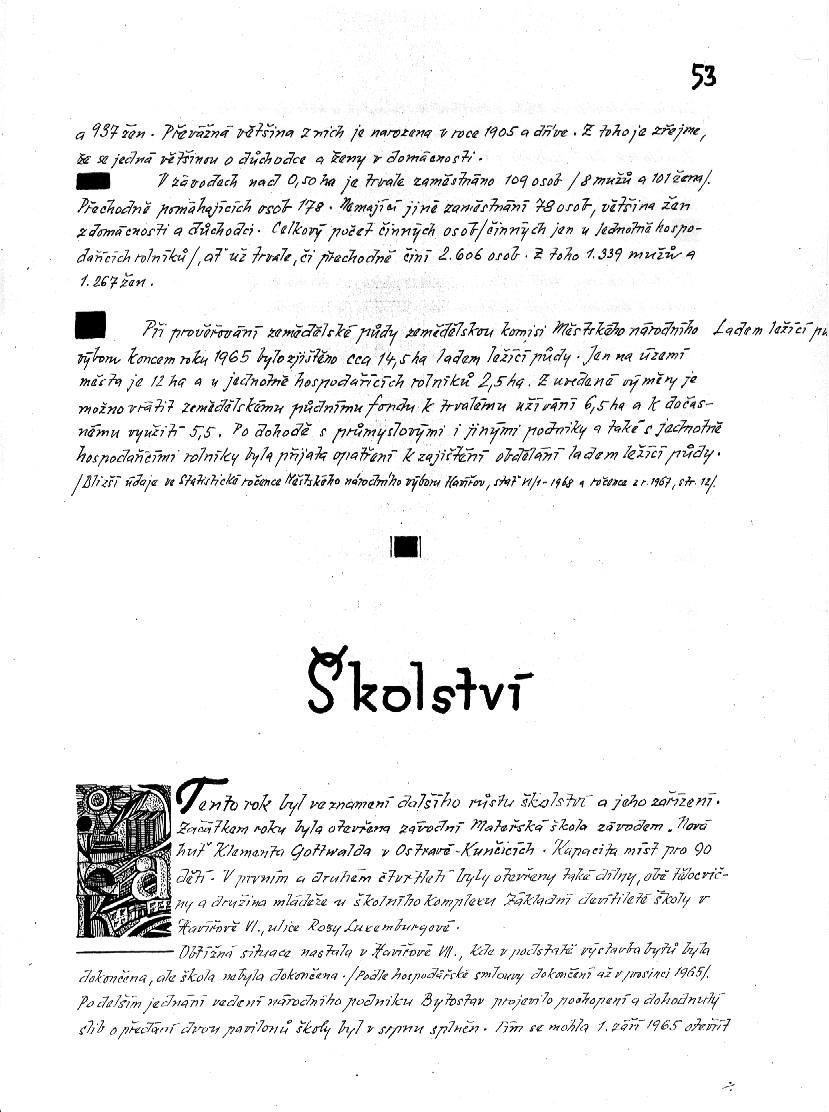 53
a 937 žen. Převážná většina z nich je narozena v roce 1905 a dříve. Z toho je zřejmé,
že se jedná většinou o důchodce a ženy v domácnosti.
V závodech nad 0,50 ha je trvale zaměstnáno 109 osob /8 mužů a 101 žen/.
Přechodně pomáhajících osob 178. Nemající jiné zaměstnání 78 osob, většina žen
z domácností a důchodci. Celkový počet činných osob /činných jen u jednotně hospo-
dařících rolníků/, ať už trvale, či přechodně činí 2.606 osob. Z toho 1.339 mužů a
1.267 žen.
Při prověřování zemědělské půdy zemědělskou komisí Městského národního Ladem ležící pů
výboru koncem roku 1965 bylo zjištěno cca 14,5 ha ladem ležící půdy. Jen na území
města je 12 ha a u jednotně hospodařících rolníků 2,5 ha. Z uvedené výměry je
možno vrátit zemědělskému půdnímu fondu k trvalému užívání 6,5 ha a k dočas-
nému využití 5,5. Po dohodě s průmyslovými i jinými podniky a také s jednotně
hospodařícími rolníky byla přijata opatření k zajištění obdělání ladem ležící půdy.
/Bližší údaje ve Statistické ročence Městského národního výboru Havířov, stať VI/1-1968 a ročence z r. 1967, str. 12/.
Školství
Tento rok byl ve znamení dalšího růstu školství a jeho zařízení.
Začátkem roku byla otevřena závodní Mateřská škola závodem „Nová
huť Klementa Gottwalda v Ostravě-Kunčicích. Kapacita míst pro 90
dětí. V prvním a druhém čtvrtletí byly otevřeny také dílny, obě tělocvič-
ny a družina mládeže u školního komplexu Základní devítileté školy v
Havířově VI., ulice Rosy Luxemburgové.
Obtížná situace nastala v Havířově VII., kde v podstatě výstavba bytů byla
dokončena, ale škola nebyla dokončena. /Podle hospodářské smlouvy dokončení až v prosinci 1965/.
Po delším jednání vedení národního podniku Bytostav projevilo pochopení a dohodnutý
slib o předání dvou pavilonů školy byl v srpnu splněn. Tím se mohla 1. září 1965 otevřít